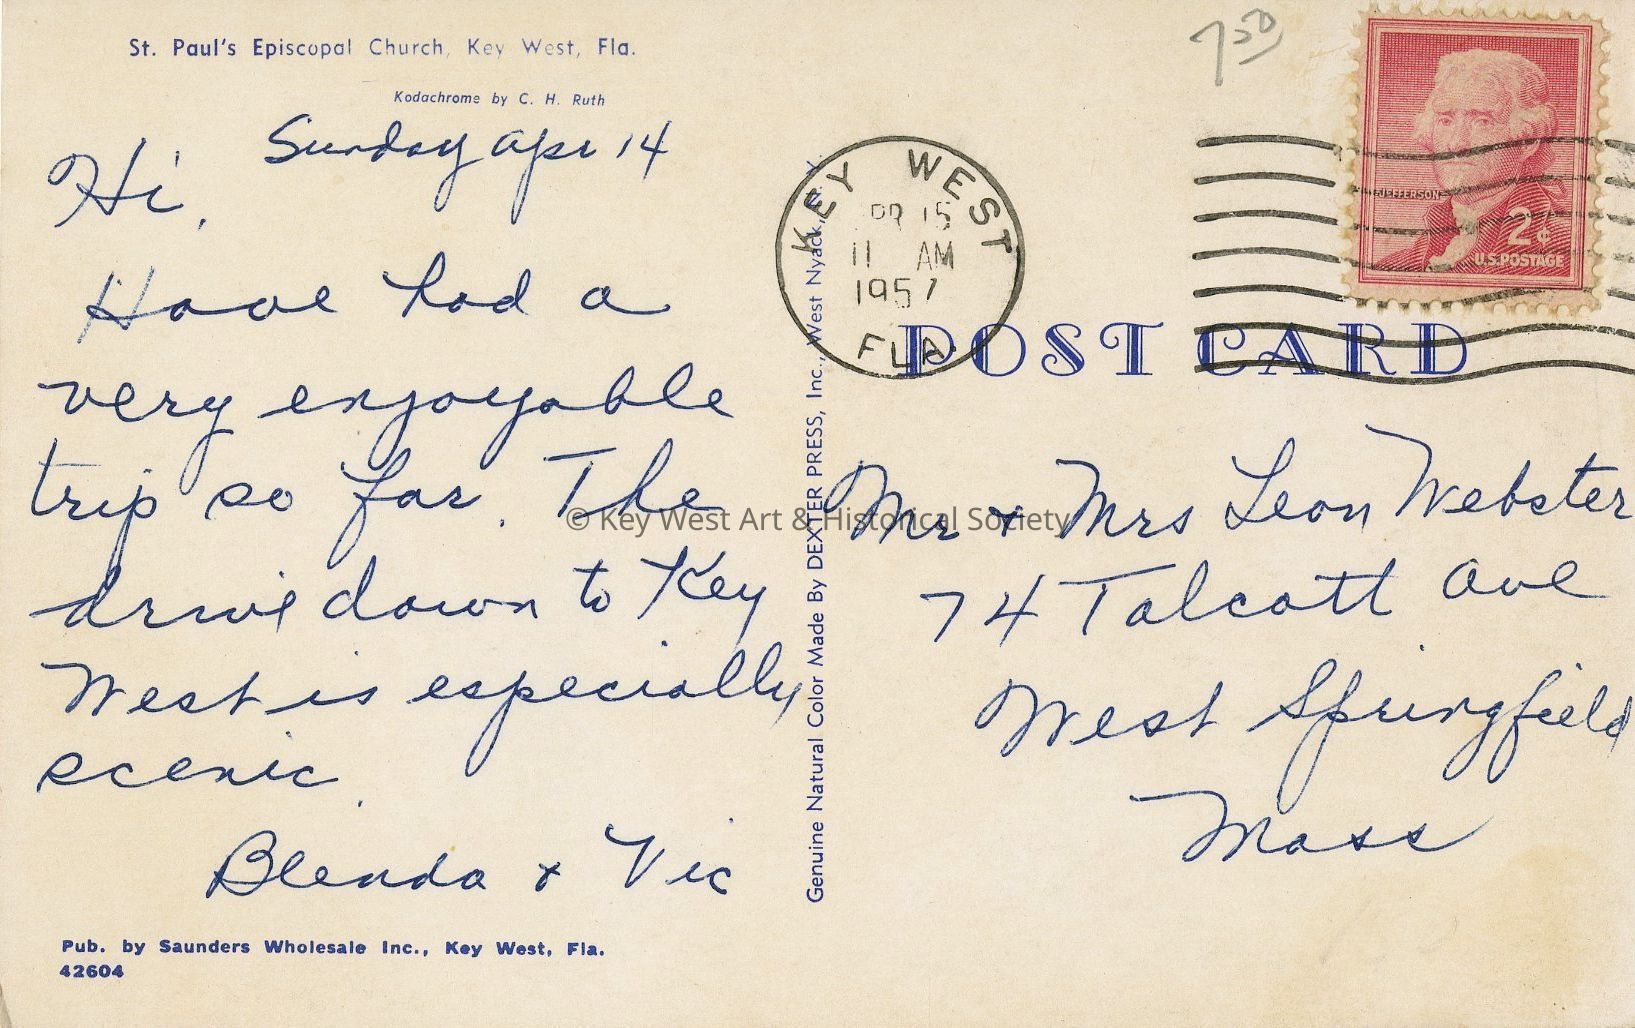 St. Paul's Episcopal Church, Key West, Fla.
Kodachrome by C. H. Ruth
Sunday Apr 14
Hi,
Have had a
very enjoyable
trip so far. The
drive down to Key
West is especially
scenic.
Blenda & Vic
Pub. by Saunders Wholesale Inc., Key West, Fla.
42604
Genuine Natural Color Made By DEXTER PRESS, Inc., West Nyack, N. Y.
© Key West Art & Historical Society
7 50
KEY WEST
APR 15
11 AM
1957
FLA.
JEFFERSON
2¢
U.S. POSTAGE
POST CARD
Mr & Mrs Leon Webster
74 Talcott Ave
West Springfield
Mass